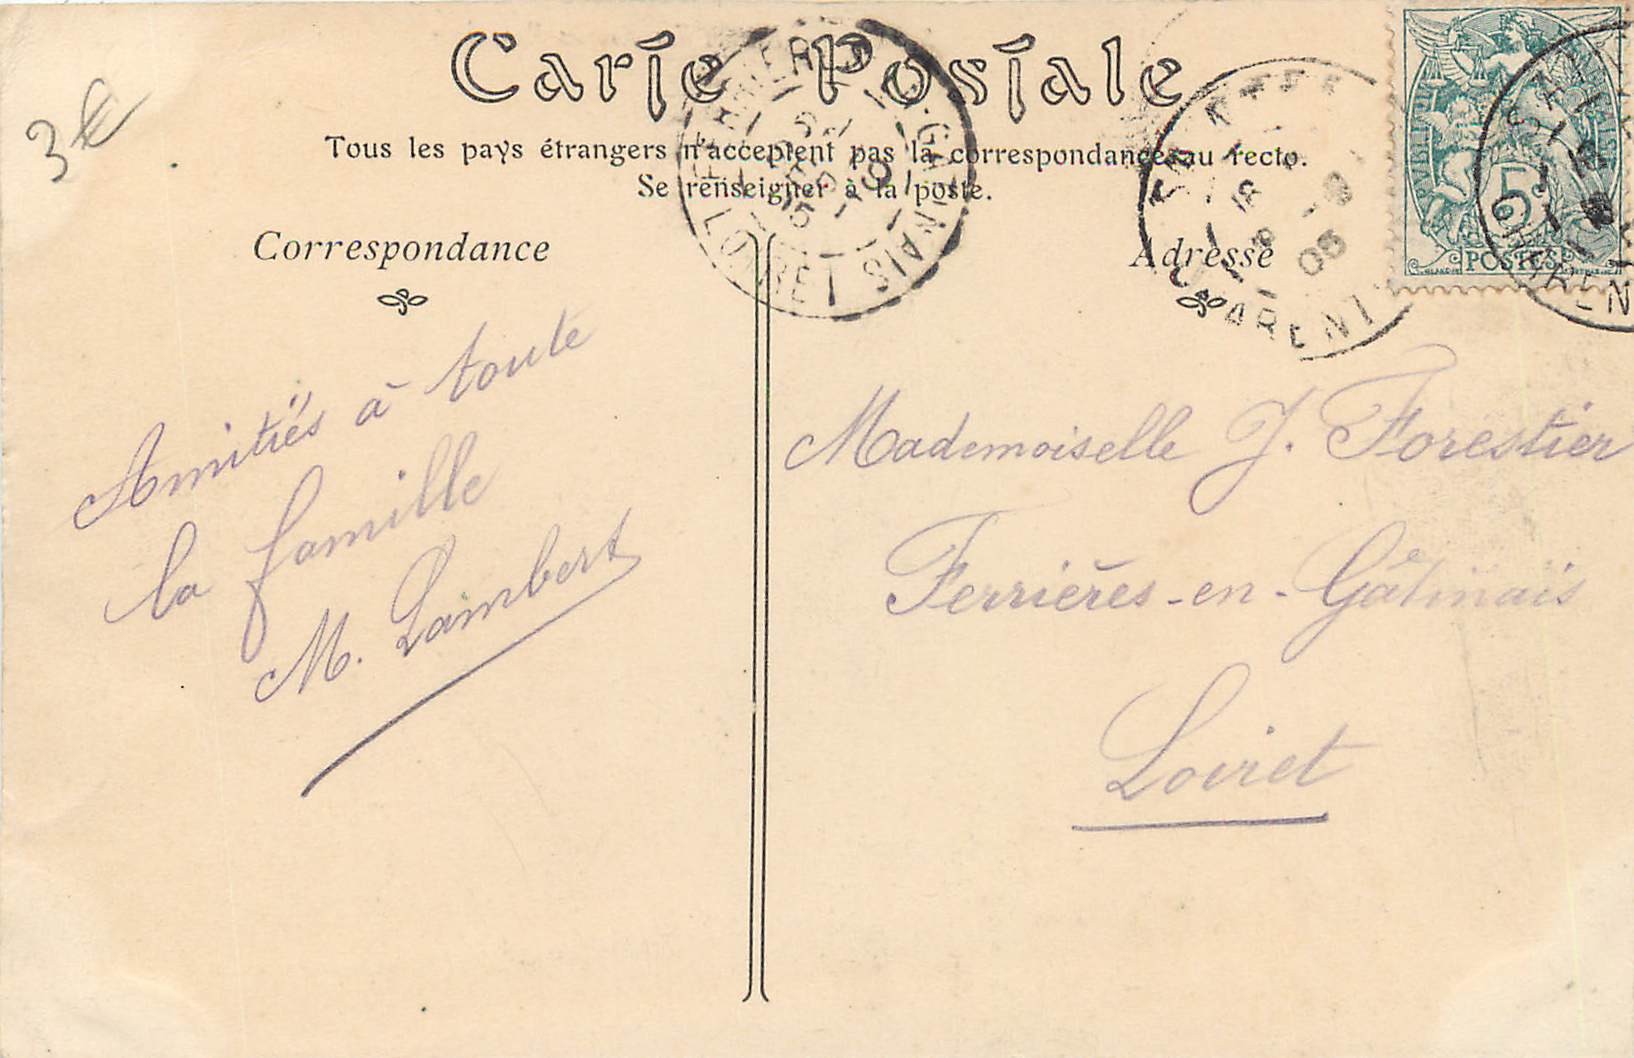 3€
Carte Postale
Tous les pays étrangers n'acceptent pas la correspondance au recto.
Se renseigner à la poste.
Correspondance
Adresse
FERRIERES-GATINAIS
LOIRET
POSTES
5
Amitiés à toute
la famille
M. Lambert
Mademoiselle J. Forestier
Ferrières-en-Gâtinais
Loiret